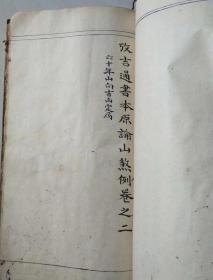 攷吉通書本原論山煞例卷之二
六十年山向吉凶定局